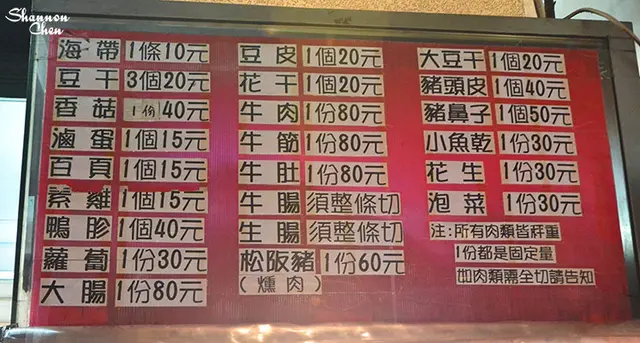 Shannon
Chen
海帶 1條10元
豆干 3個20元
香菇 1份40元
滷蛋 1個15元
百頁 1個15元
素雞 1個15元
鴨胗 1個40元
蘿蔔 1份30元
大腸 1份80元
豆皮 1個20元
花干 1個20元
牛肉 1份80元
牛筋 1份80元
牛肚 1份80元
牛腸 須整條切
生腸 須整條切
松阪豬 1份60元
(燻肉)
大豆干 1個20元
豬頭皮 1個40元
豬鼻子 1個50元
小魚乾 1份30元
花生 1份30元
泡菜 1份30元
注:所有肉類皆秤重
1份都是固定量
如肉類需全切請告知